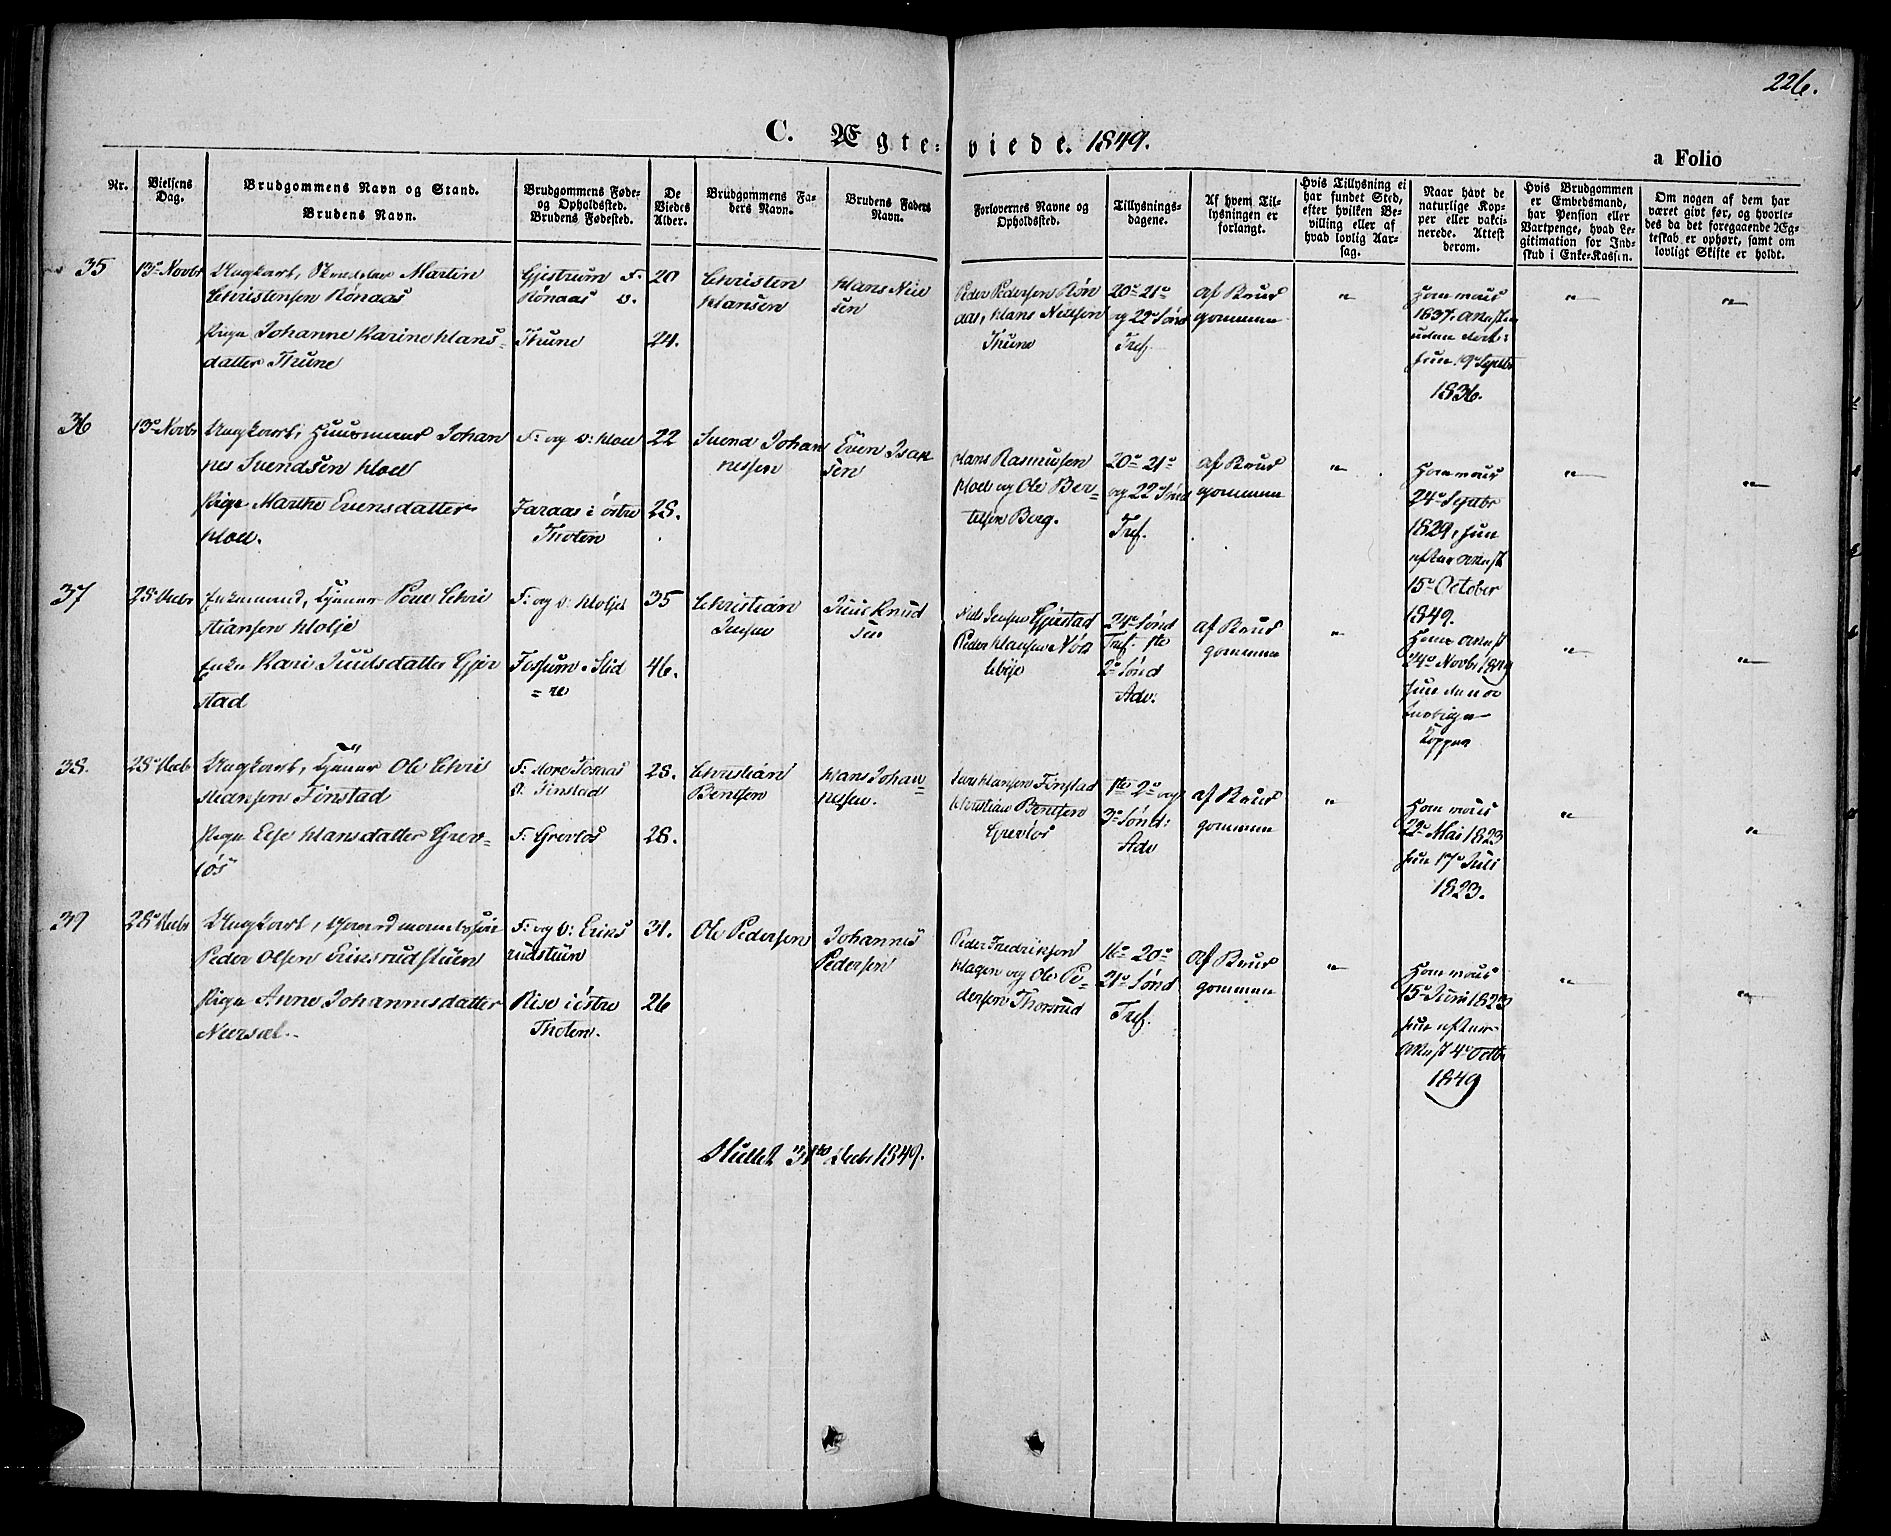 226.
C. Ægte- viede. 1849.
a Folio
Nr.
Vielsens Dag.
Brudgommens Navn og Stand.
Brudens Navn.
Brudgommens Føde-
og Opholdssted.
Brudens Fødested.
De
Viedes
Alder.
Brudgommens Fa-
ders Navn.
Brudens Faders
Navn.
Forlovernes Navne og
Opholdssted.
Tillysnings-
dagene.
Af hvem Til-
lysningen er
forlangt.
Hvis Tillysning ei
har fundet Sted,
efter hvilken Be-
villing eller af
hvad lovlig Aar-
sag.
Naar havt de
naturlige Kop-
per eller vakci-
nerede. Attest
derom.
Hvis Brudgommen
er Embedsmand,
har Pension eller
Vartpenge, hvad Le-
gitimation for Ind-
skud i Enke-Kassen.
Om nogen af dem har
været givt før, og hvorle-
des da det foregaaende Æg-
teskab er ophørt, samt om
lovligt Skifte er holdt.
35
13de Novbr
Ungkarl, Martin
Christensen Rønaas
Pige Johanne Karine Hans-
datter Thune
Gjestrum F:
Rønaas O.
Thune
20
24.
Christen
Hansen
Hans Niel
sen
Peder Pedersen Røn
aas, Hans Nielsen
Thune
20de 21de
og 22de Sønd
Tref.
af Brud
gommen
"
Ham
1837.
uden
hun 19de Septbr
1836.
"
"
36
13de Novbr
Ungkarl, Huusmand Johan
nes Svendsen Hoel
Pige Marthe Evensdatter
Hoel.
F: og O: Hoel
Faraas i østre
Thoten
22
28.
Svend Johan
nessen
Even Isak
sen
Hans Rasmussen
Hoel og Ole Ber-
telsen Berg.
20de 21de
og 22de Sønd
Tref.
af Brud
gommen
"
Ham
24de Septbr
1829, hun
efter Attest
15de October
1849.
"
"
37
28de Decbr
Enkemand, Povel Chri
stiansen Holje
Enke Kari Juulsdatter Gjer
stad
F: og O: Holje
Fossum i Slid
=re
35
46.
Christian
Jensen
Juul Knud
sen
Niels Jensen Gjerstad
Peder Hansen Nør
lebye
24de Sønd
Tref: 1ste
2de Sønd
Adv.
af Brud
gommen
"
Ham Attest
24de Novbr 1849
hun de
naturlige
Kopper
"
"
38.
28de Decbr
Ungkarl, Ole Chri
stiansen Finstad
Pige Else Hansdatter Grev-
løs
F: store Tomas
O. Finstad
F: Grevløs
28.
28.
Christian
Bentsen
Hans Johan=
nesen.
Hansen Finstad
Christian Bentsen
Grevløs
1ste 2de og
3de Sønd:
Adv
af Brud
gommen
"
Ham
22de Mai 1823
hun 17de Juli
1823.
"
"
39
28de Decbr
Ungkarl, Gaardmandssøn
Peder Olsen Eriksrudstuen
Pige Anne Johannesdatter
Neersæt.
F: og O: Eriks
rudstuen
Rise i østre
Thoten.
31.
26
Ole Pedersen
Johannes
Pedersen
Peder Fredriksen
Hagen og Ole Pe-
dersen Thorsrud
16de 20de
21de Sønd
Tref.
af Brud
gommen
"
Ham
15de Juni 1823
hun efter
Attest 4de Octbr
1849
"
"
Sluttet 31te Decbr 1849.